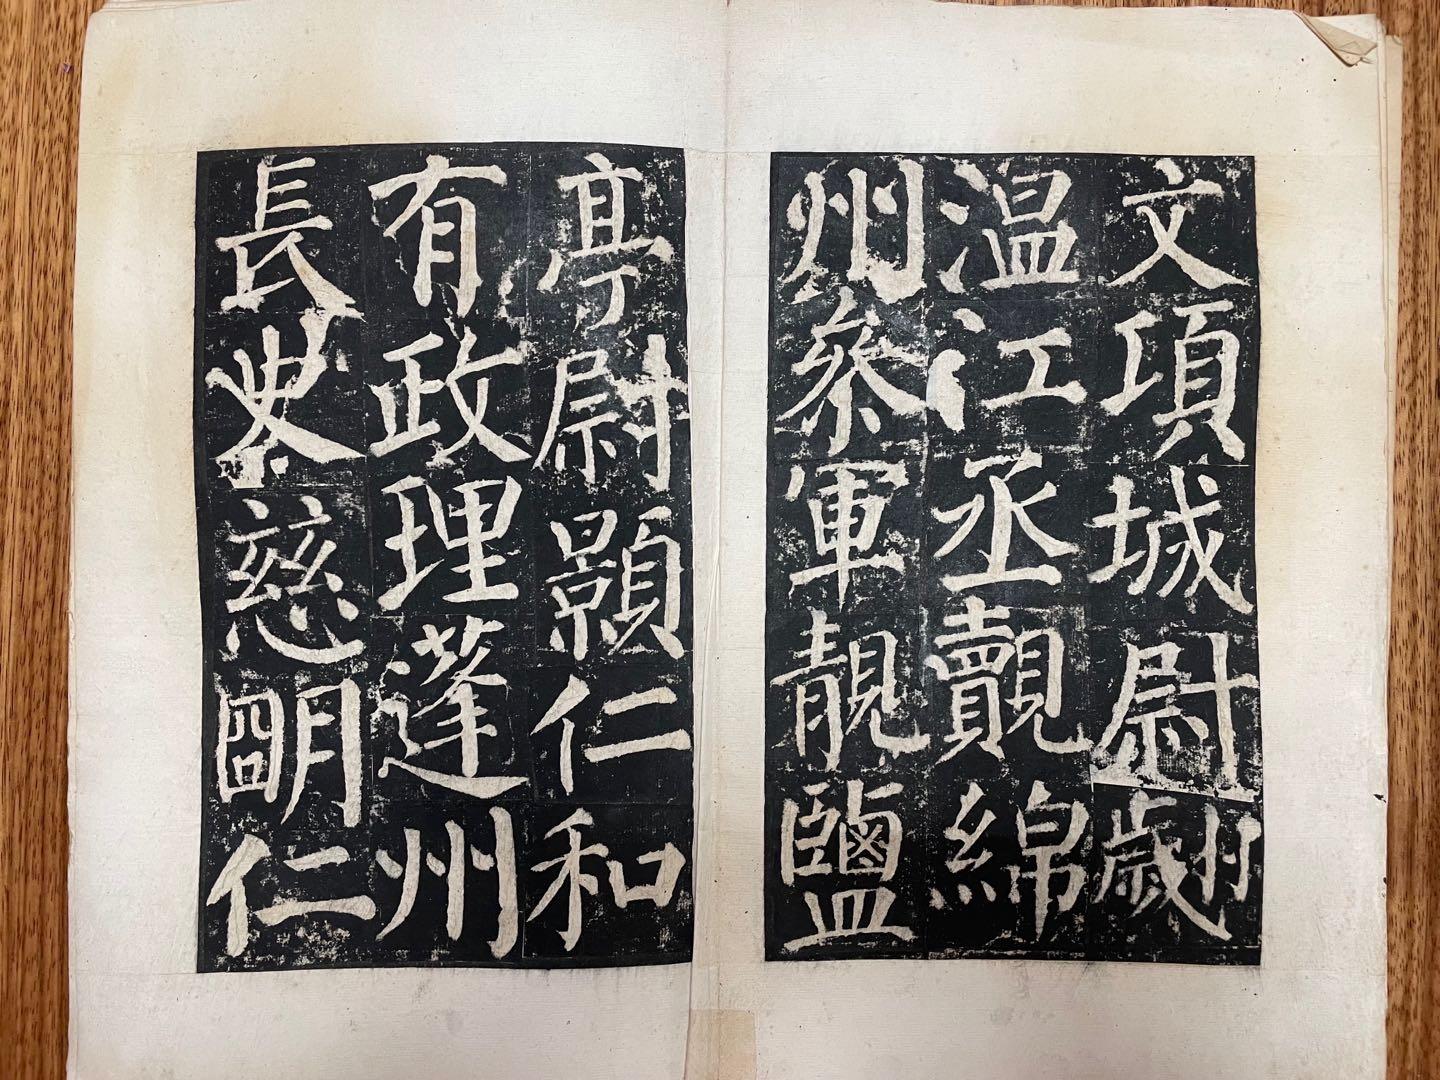 文項城尉翽
温江丞覿綿
州參軍靚鹽
亭尉顥仁和
有政理蓬州
長史慈明仁